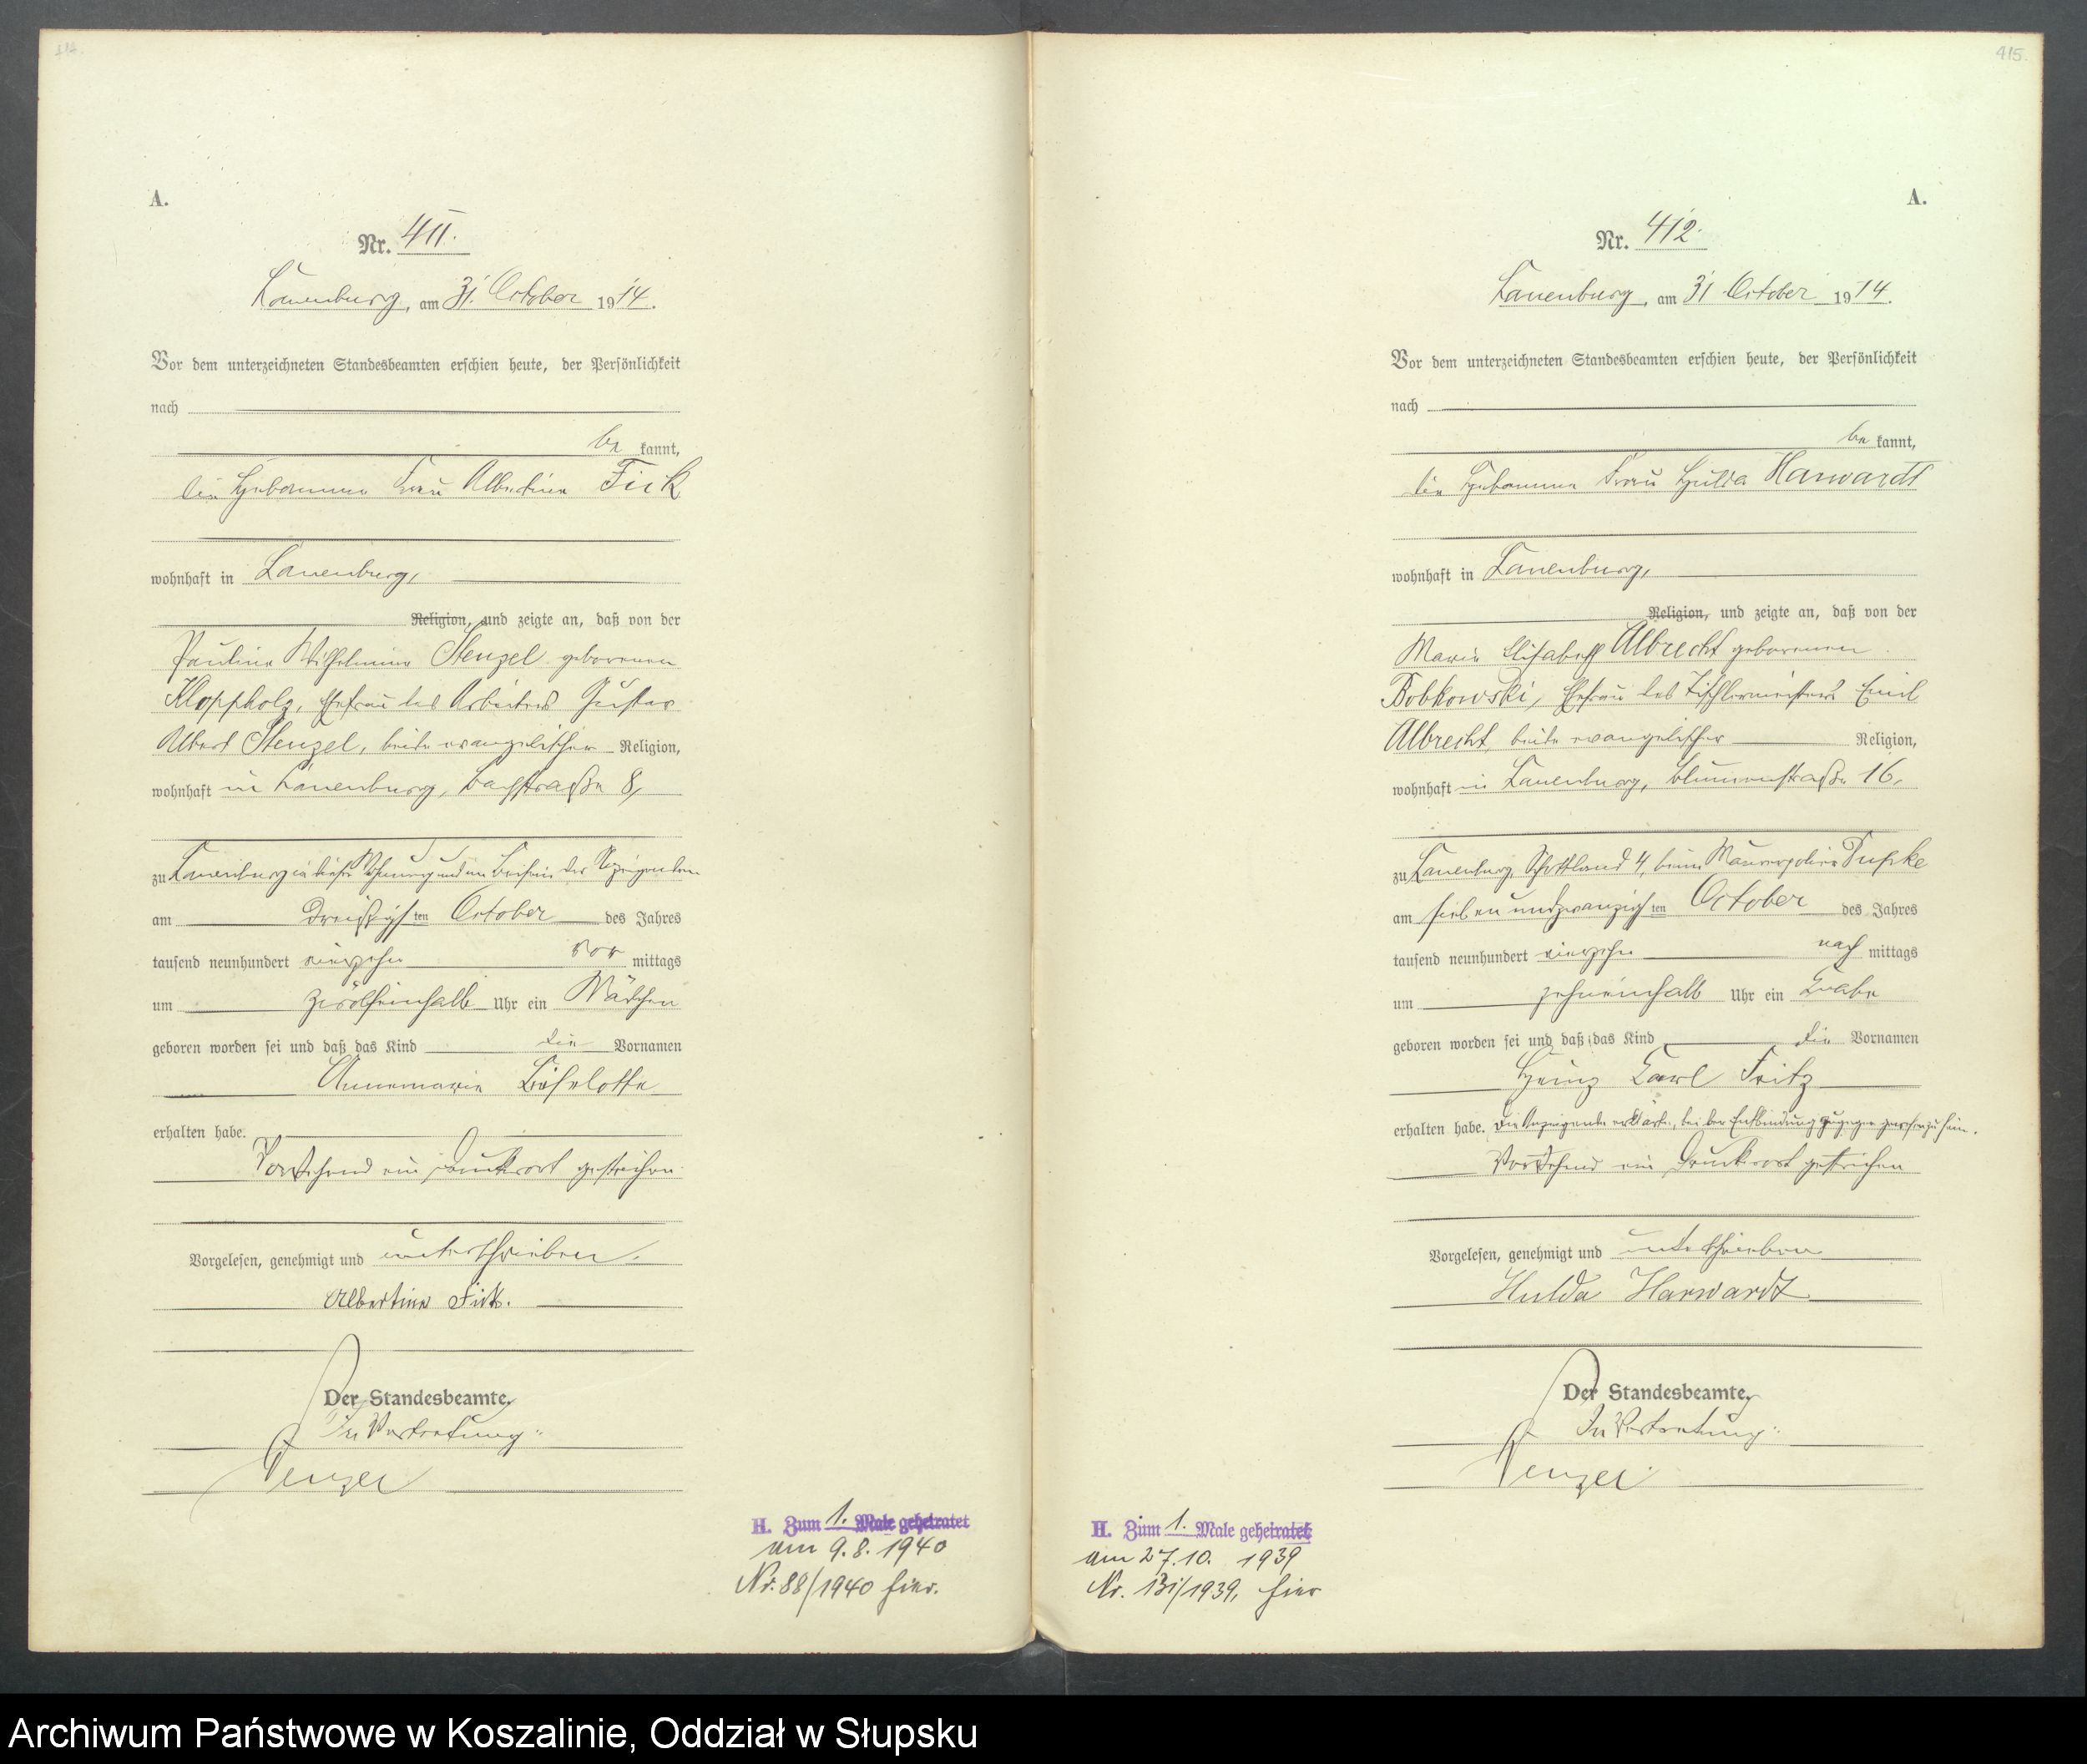 414.
A.
Nr. 411.
Lauenburg, am 31. October 1914.
Vor dem unterzeichneten Standesbeamten erschien heute, der Persönlichkeit
nach
be kannt,
die Hebamme Frau Albertine Fick
wohnhaft in Lauenburg,
Religion, und zeigte an, daß von der
Pauline Wilhelmine Stenzel geborenen
Kloppholz, Ehefrau des Arbeiters Gustav
Albert Stenzel, beide evangelischer Religion,
wohnhaft in Lauenburg, Bachstraße 8,
zu Lauenburg in dieser Wohnung und im Beisein der Anzeigenden
am dreißigsten October des Jahres
tausend neunhundert vierzehn vor mittags
um zwölfeinhalb Uhr ein Mädchen
geboren worden sei und daß das Kind die Vornamen
Annemarie Liselotte
erhalten habe.
Vorstehend ein Druckwort gestrichen.
Vorgelesen, genehmigt und unterschrieben.
Albertine Fick.
Der Standesbeamte,
In Vertretung:
H. Zum 1. Male geheiratet
am 9.8.1940
Nr. 88/1940 hier.
415.
A.
Nr. 412.
Lauenburg, am 31 October 1914.
Vor dem unterzeichneten Standesbeamten erschien heute, der Persönlichkeit
nach
be kannt,
die Hebamme Frau Hulda Harwardt
wohnhaft in Lauenburg,
Religion, und zeigte an, daß von der
Marie Elisabeth Albrecht geborenen
Bobkowski, Ehefrau des Tischlermeisters Emil
Albrecht, beide evangelischer Religion,
wohnhaft in Lauenburg, Blumenstraße 16,
zu Lauenburg, Schottland 4, beim Maurerpolier
am siebenundzwanzigsten October des Jahres
tausend neunhundert vierzehn nach mittags
um zehneinhalb Uhr ein Knabe
geboren worden sei und daß das Kind die Vornamen
Heinz Carl Fritz
erhalten habe. Die Anzeigende erklärte, bei der Entbindung zugegen gewesen zu sein.
Vorstehend ein Druckwort gestrichen
Vorgelesen, genehmigt und unterschrieben
Hulda Harwardt
Der Standesbeamte,
In Vertretung:
H. Zum 1. Male geheiratet
am 27.10. 1939
Nr. 131/1939, hier
Archiwum Państwowe w Koszalinie, Oddział w Słupsku